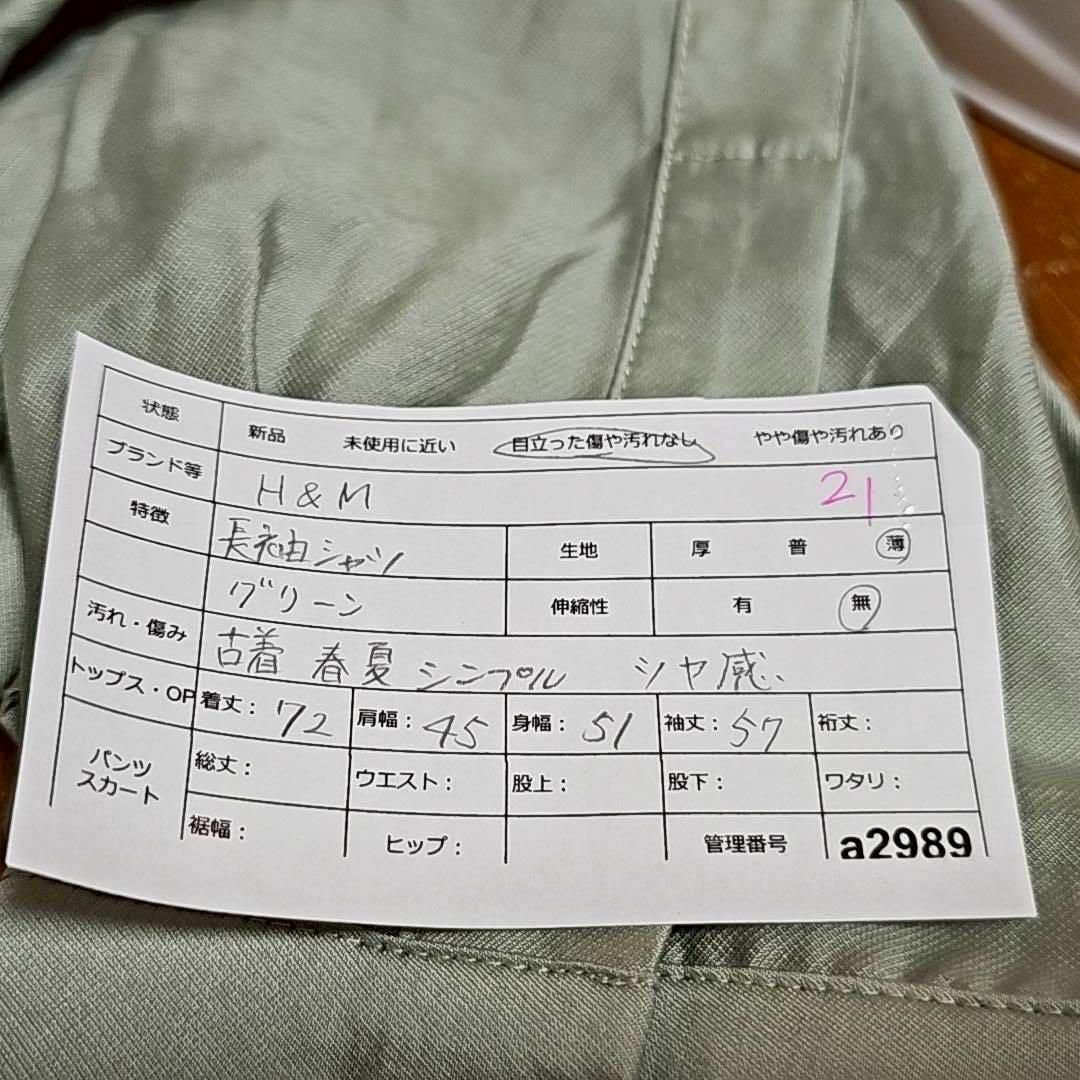 状態 新品 未使用に近い 目立った傷や汚れなし やや傷や汚れあり
ブランド等 H&M 21
特徴 長袖シャツ 生地 厚 普 薄
グリーン 伸縮性 有 無
汚れ・傷み 古着 春夏 シンプル ツヤ感
トップス・OP 着丈：72 肩幅：45 身幅：51 袖丈：57 裄丈：
パンツ
スカート
総丈： ウエスト： 股上： 股下： ワタリ：
裾幅： ヒップ： 管理番号 a2989